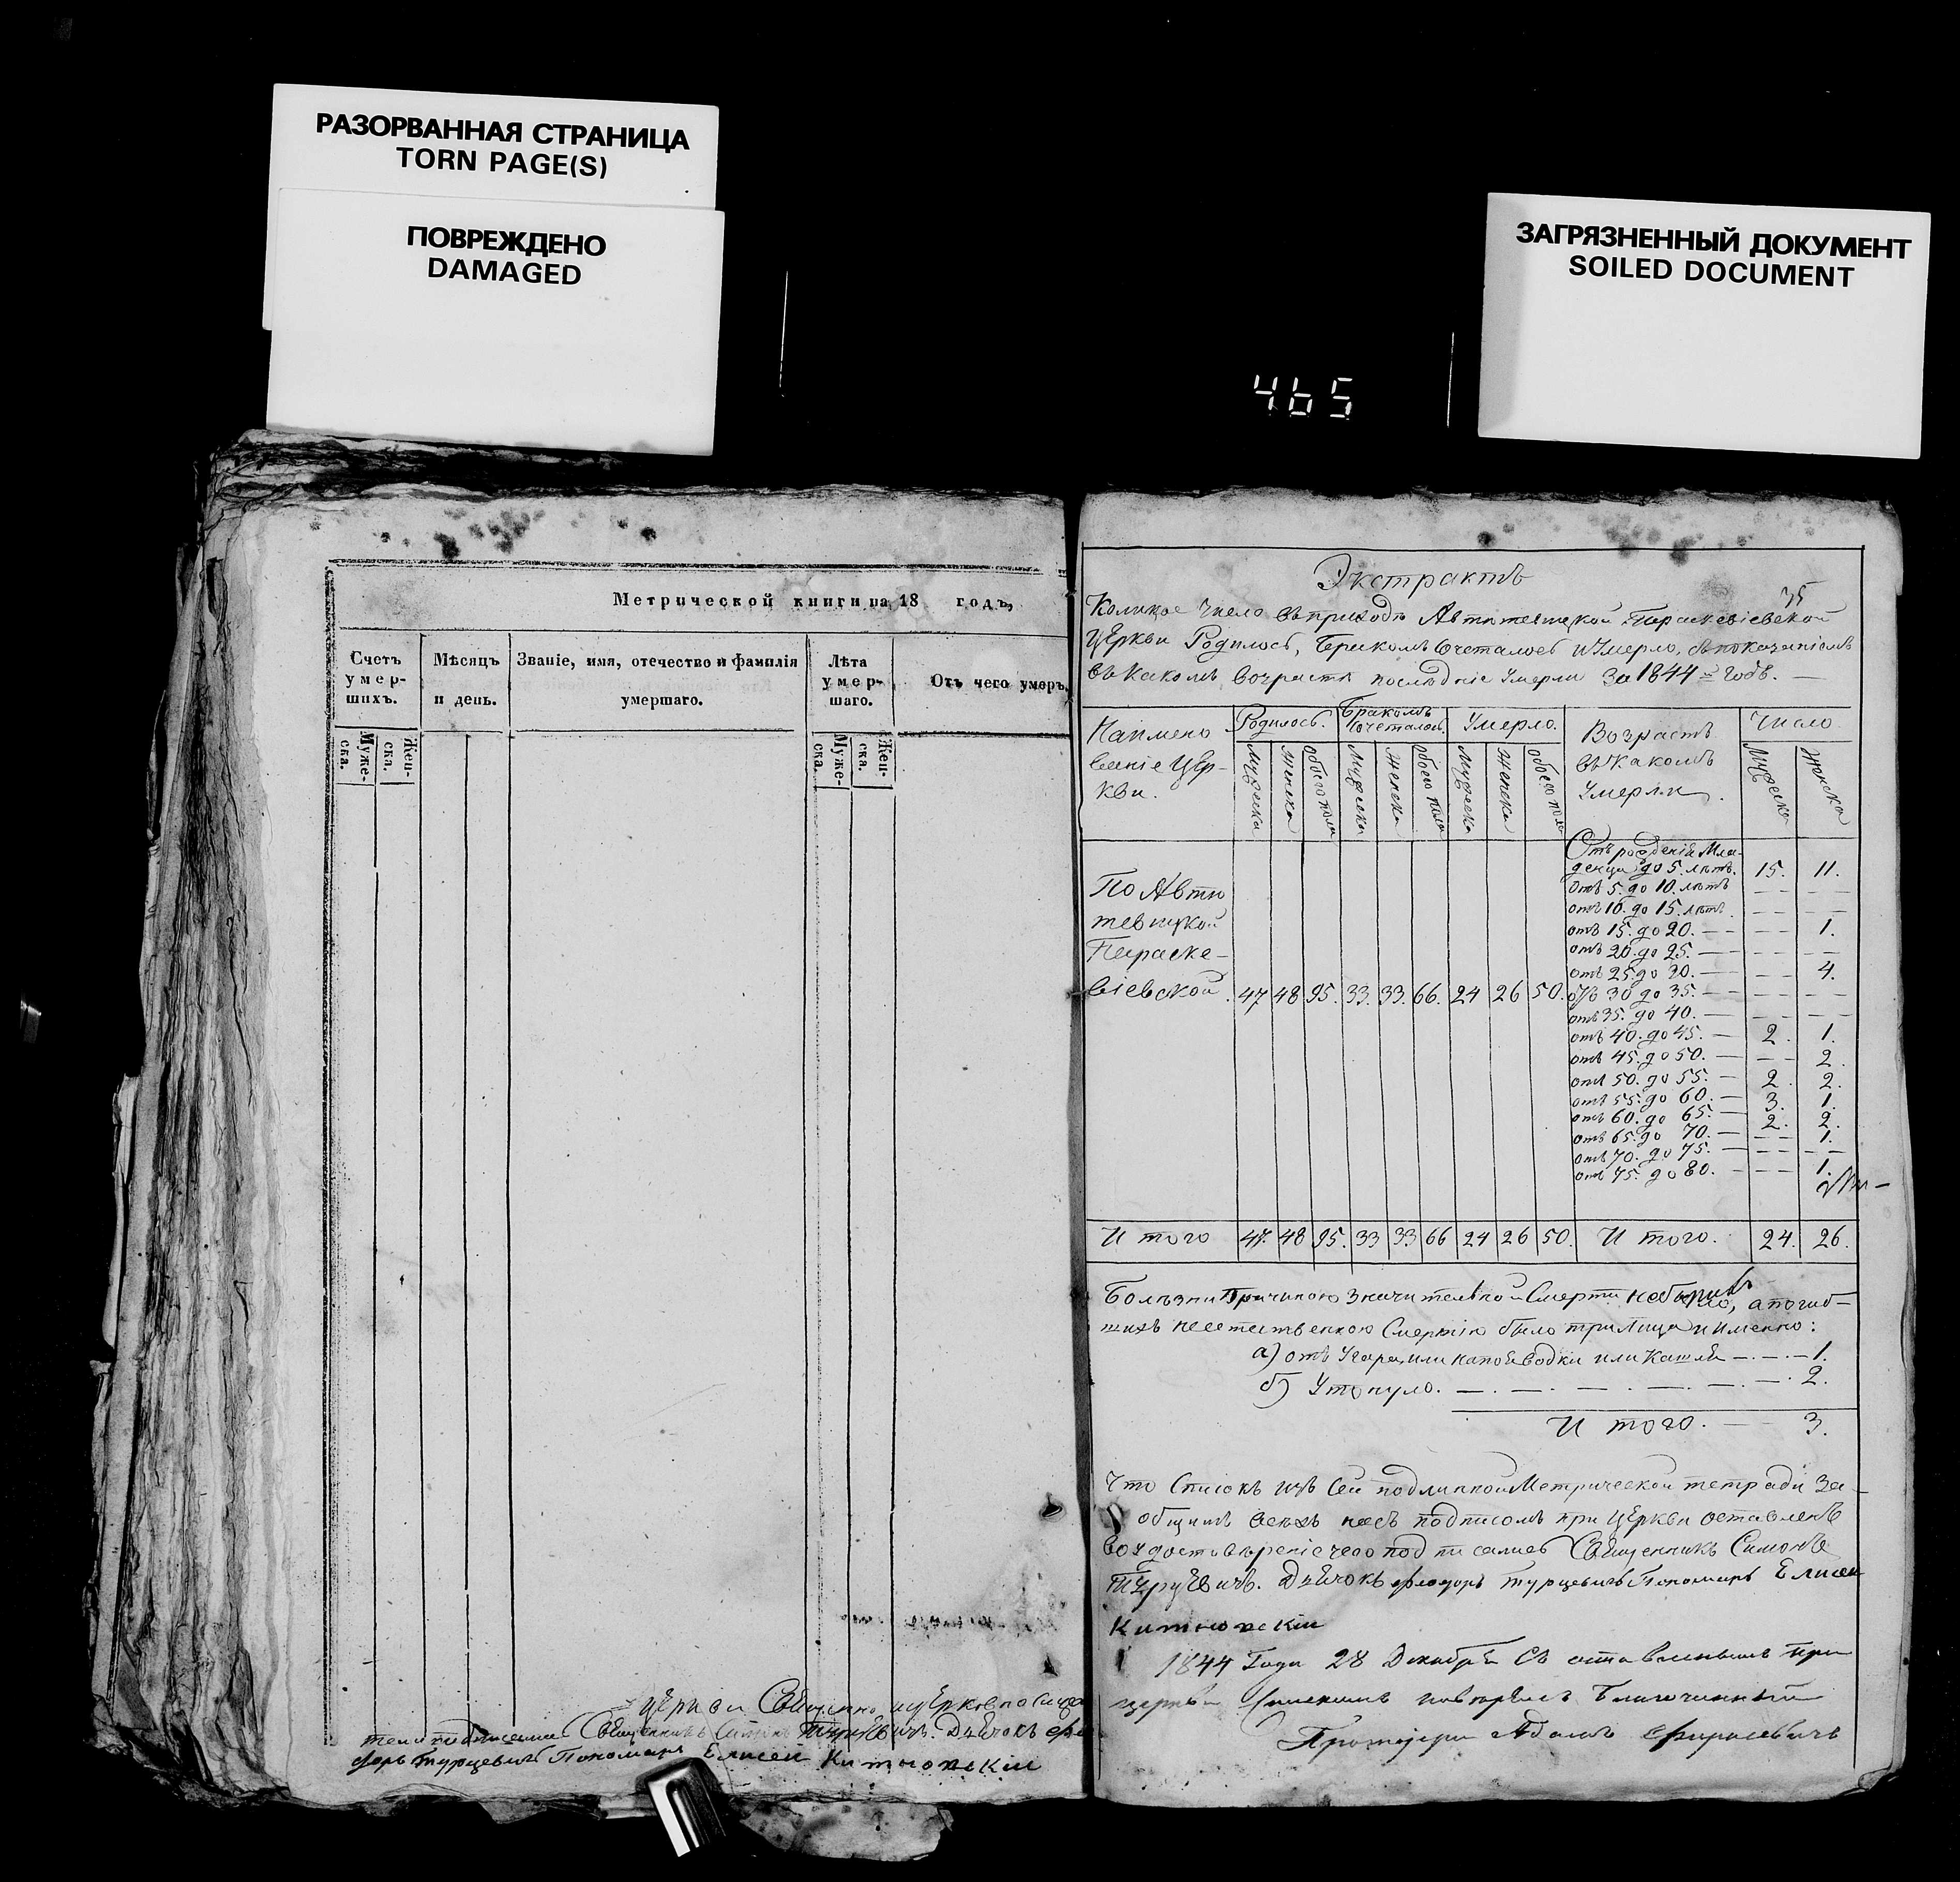 РАЗОРВАННАЯ СТРАНИЦА
TORN PAGE(S)
ПОВРЕЖДЕНО
DAMAGED
ЗАГРЯЗНЕННЫЙ ДОКУМЕНТ
SOILED DOCUMENT
465
Метрической книги на 18 годъ,
Счетъ умер-шихъ.
Мѣсяцъ и день.
Званіе, имя, отечество и фамилія умершаго.
Лѣта умер-шаго.
Отъ чего умеръ
Муже-ска.
Жен-ска.
Муже-ска.
Жен-ска.
церкви Священно и церковнослужи
тели подписались Священникъ Симонъ Дьячокъ Фео
доръ Турцевичъ Пономарь Елисей
Экстрактъ
75
Коликое число въ приходѣ Парасkeвіевской
Церкви Родилось, Бракомъ Сочеталось и Умерло, съ показаніемъ
въ какомъ возрастѣ послѣдніе Умерли за 1844 годъ.
Наимено
ваніе Цер-
кви.
Родилось.
Бракомъ
Сочеталось
Умерло.
Возрастъ
въ какомъ
Умерли.
Число
Мужеска
Женска
Обоего пола
Мужеска
Женска
Обоего пола
Мужеска
Женска
Обоего пола
Мужеска
Женска
Отъ рожденія Мла-
денца до 5. лѣтъ. 15. 11.
отъ 5. до 10. лѣтъ — — — —
отъ 10. до 15. лѣтъ — — — —
отъ 15. до 20. — — — 1.
отъ 20. до 25. — — — — —
отъ 25 до 30. — — — 4.
отъ 30 до 35. — — — — —
отъ 35. до 40. — — — — —
отъ 40. до 45. — 2. 1.
отъ 45. до 50. — — — 2.
отъ 50. до 55. — 2. 2.
отъ 55. до 60. — 3. 1.
отъ 60. до 65. — 2. 2.
отъ 65. до 70. — — — 1.
отъ 70. до 75. — — — — —
отъ 75. до 80. — — — 1.
По
Параске-
віевской. 47 48 95. 33. 33. 66. 24 26 50.
И того 47. 48 95. 33 33 66 24 26 50. И того. 24. 26.
Болѣзни причиною значительной Смерти не было, а погиб-
шихъ неестественною Смертію было три Лица именно:
а) отъ Угара, или водки или — . — . — 1.
б) Утонуло. — . — . — . — . — . — 2.
И того. — 3.
Что Списокъ изъ сей подлинной Метрической тетради за
общимъ всѣхъ насъ подписомъ при Церкви оставленъ
въ удостовѣреніе чего подписались Священникъ Симонъ
Дьячокъ Феодоръ Турцевичъ Пономарь Елисей
1844 Года 28 Декабря Съ оставленнымъ при
церкви Спискомъ повѣрялъ Благочинный
Протоіерей Адамъ